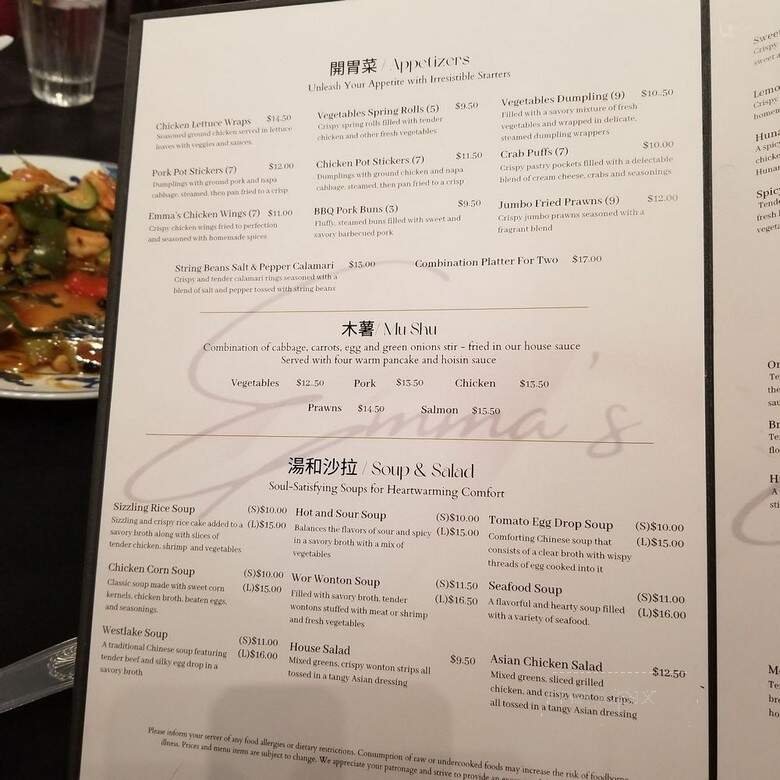 開胃菜 / Appetizers
Unleash Your Appetite with Irresistible Starters
Chicken Lettuce Wraps $14.50
Seasoned ground chicken served in lettuce
leaves with veggies and sauces.
Vegetables Spring Rolls (5) $9.50
Crispy spring rolls filled with tender
chicken and other fresh vegetables
Vegetables Dumpling (9) $10.50
Filled with a savory mixture of fresh
vegetables and wrapped in delicate,
steamed dumpling wrappers
Pork Pot Stickers (7) $12.00
Dumplings with ground pork and napa
cabbage, steamed, then pan fried to a crisp
Chicken Pot Stickers (7) $11.50
Dumplings with ground chicken and napa
cabbage, steamed, then pan fried to a crisp
Crab Puffs (7) $10.00
Crispy pastry pockets filled with a delectable
blend of cream cheese, crabs and seasonings
Emma's Chicken Wings (7) $11.00
Crispy chicken wings fried to perfection
and seasoned with homemade spices
BBQ Pork Buns (3) $9.50
Fluffy, steamed buns filled with sweet and
savory barbecued pork
Jumbo Fried Prawns (9) $12.00
Crispy jumbo prawns seasoned with a
fragrant blend
String Beans Salt & Pepper Calamari $13.00
Crispy and tender calamari rings seasoned with a
blend of salt and pepper tossed with string beans
Combination Platter For Two $17.00
木薯/ Mu Shu
Combination of cabbage, carrots, egg and green onions stir - fried in our house sauce
Served with four warm pancake and hoisin sauce
Vegetables $12.50 Pork $13.50 Chicken $13.50
Prawns $14.50 Salmon $15.50
Emma's
湯和沙拉 / Soup & Salad
Soul-Satisfying Soups for Heartwarming Comfort
Sizzling Rice Soup (S)$10.00
Sizzling and crispy rice cake added to a (L)$15.00
savory broth along with slices of
tender chicken, shrimp and vegetables
Hot and Sour Soup (S)$10.00
Balances the flavors of sour and spicy (L)$15.00
in a savory broth with a mix of
vegetables
Tomato Egg Drop Soup (S)$10.00
Comforting Chinese soup that (L)$15.00
consists of a clear broth with wispy
threads of egg cooked into it
Chicken Corn Soup (S)$10.00
Classic soup made with sweet corn (L)$15.00
kernels, chicken broth, beaten eggs,
and seasonings.
Wor Wonton Soup (S)$11.50
Filled with savory broth, tender (L)$16.50
wontons stuffed with meat or shrimp
and fresh vegetables
Seafood Soup (S)$11.00
A flavorful and hearty soup filled (L)$16.00
with a variety of seafood.
Westlake Soup (S)$11.00
A traditional Chinese soup featuring (L)$16.00
tender beef and silky egg drop in a
savory broth
House Salad $9.50
Mixed greens, crispy wonton strips all
tossed in a tangy Asian dressing
Asian Chicken Salad $12.50
Mixed greens, sliced grilled
chicken, and crispy wonton strips,
all tossed in a tangy Asian dressing
Please inform your server of any food allergies or dietary restrictions. Consumption of raw or undercooked foods may increase the risk of
illness. Prices and menu items are subject to change. We appreciate your patronage and strive to provide an